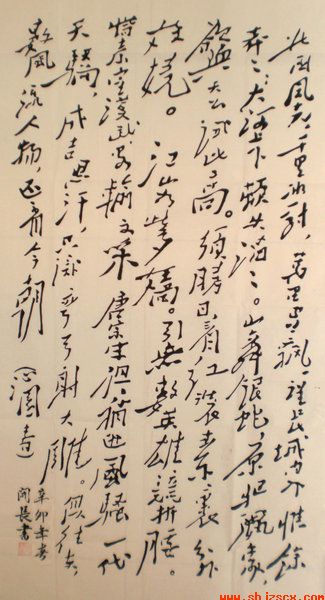 北国风光，千里冰封，萬里雪飘。望长城内外，惟余
莽莽；大河上下，顿失滔滔。山舞银蛇，原驰蜡象，
欲與天公试比高。须晴日，看红装素裹，分外
妖娆。江山如此多娇。引无数英雄竞折腰。
惜秦皇漢武，略输文采，唐宗宋祖，稍逊风骚。一代
天骄，成吉思汗，只识弯弓射大雕。俱往矣，
數風流人物，还看今朝 沁园春
辛卯年春